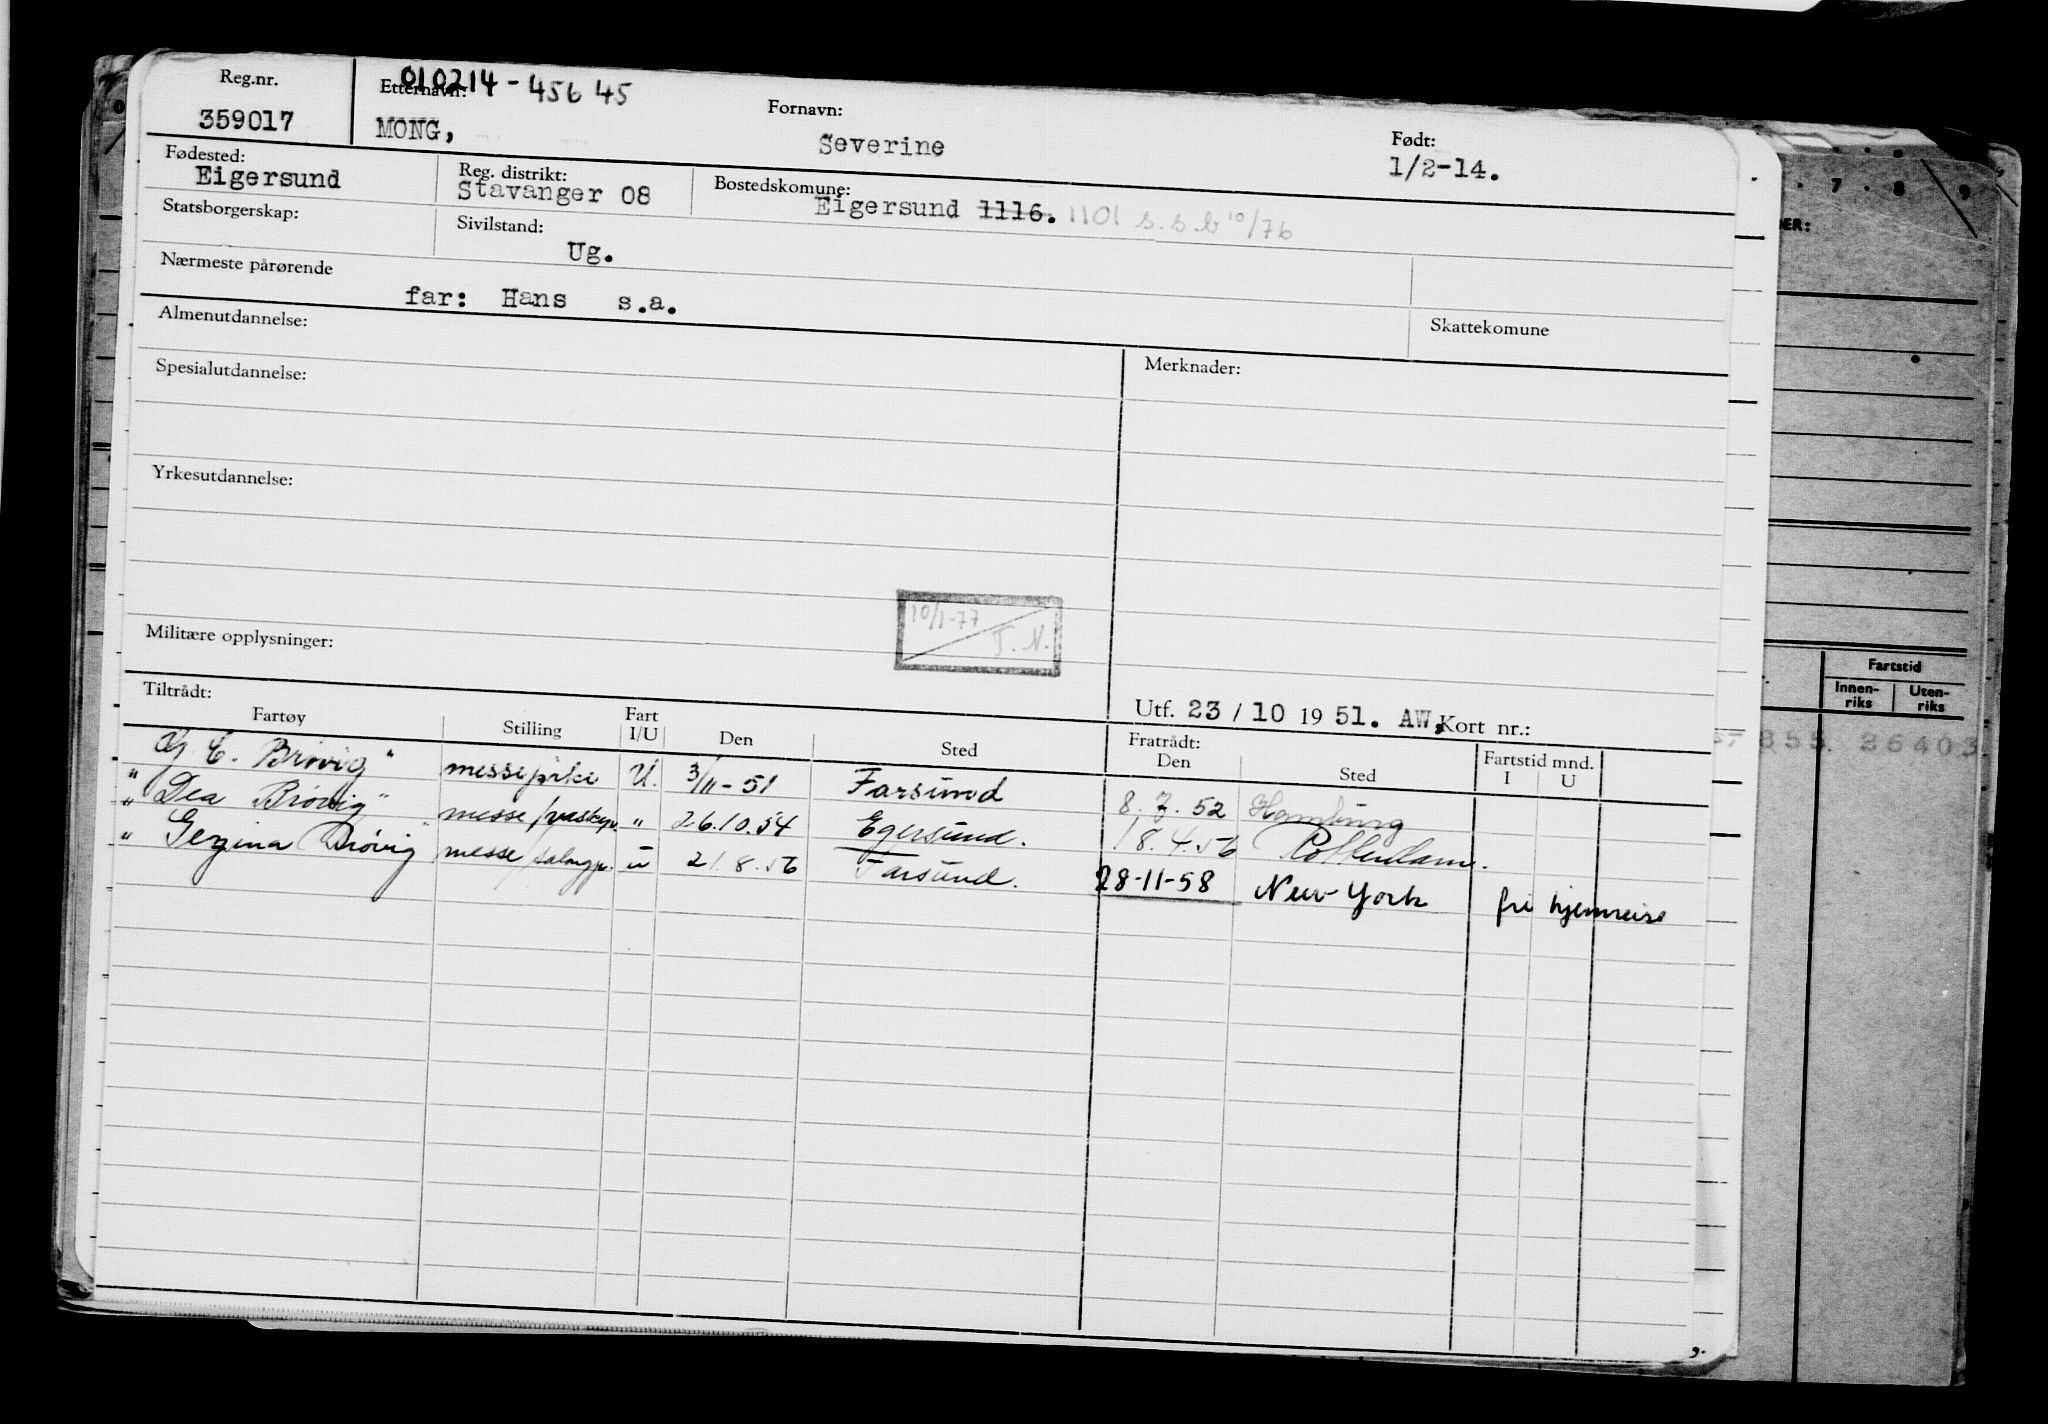 Reg.nr. 010214-45645
Etternavn: Fornavn: Født:
359017 MONG, Severine 1/2-14.
Fødested: Reg. distrikt: Bostedskomune:
Eigersund Stavanger 08 Eigersund 1116. 1101 s.s.b 10/76
Statsborgerskap: Sivilstand:
Ug.
Nærmeste pårørende
far: Hans s.a.
Almenutdannelse: Skattekomune
Spesialutdannelse: Merknader:
Yrkesutdannelse:
10/1-77
T. N.
Militære opplysninger:
Tiltrådt: Utf. 23/10 1951. AW, Kort nr.:
Fartøy Stilling Fart I/U Den Sted Fratrådt: Den Sted Fartstid mnd. I U
G. C. Brøvig" messepike U. 3/11-51 Farsund 8.7.52 Hamburg
" Dea Brøvig" messe/vaskep. " 26.10.54 Egersund. 18.4.56 Rotterdam.
" Gezina Brøvig" messe/salongp. u 21.8.56 Farsund. 28-11-58 New-York fri hjemreise
7 8 9
ER:
Fartstid
Innen-riks Uten-riks
855. 26403